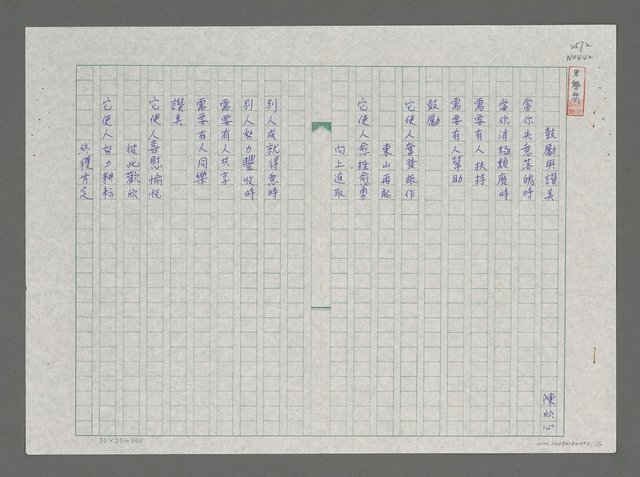 鼓勵與讚美
陳欣心
當你失意落魄時
當你消極頹廢時
需要有人扶持
需要有人幫助
鼓勵
它使人奮發振作
東山再起
它使人愈挫愈勇
向上進取
別人成就得意時
別人努力豐收時
需要有人共享
需要有人同樂
讚美
它使人喜慰愉悅
彼此歡欣
它使人努力耕耘
終獲肯定
20×25=500